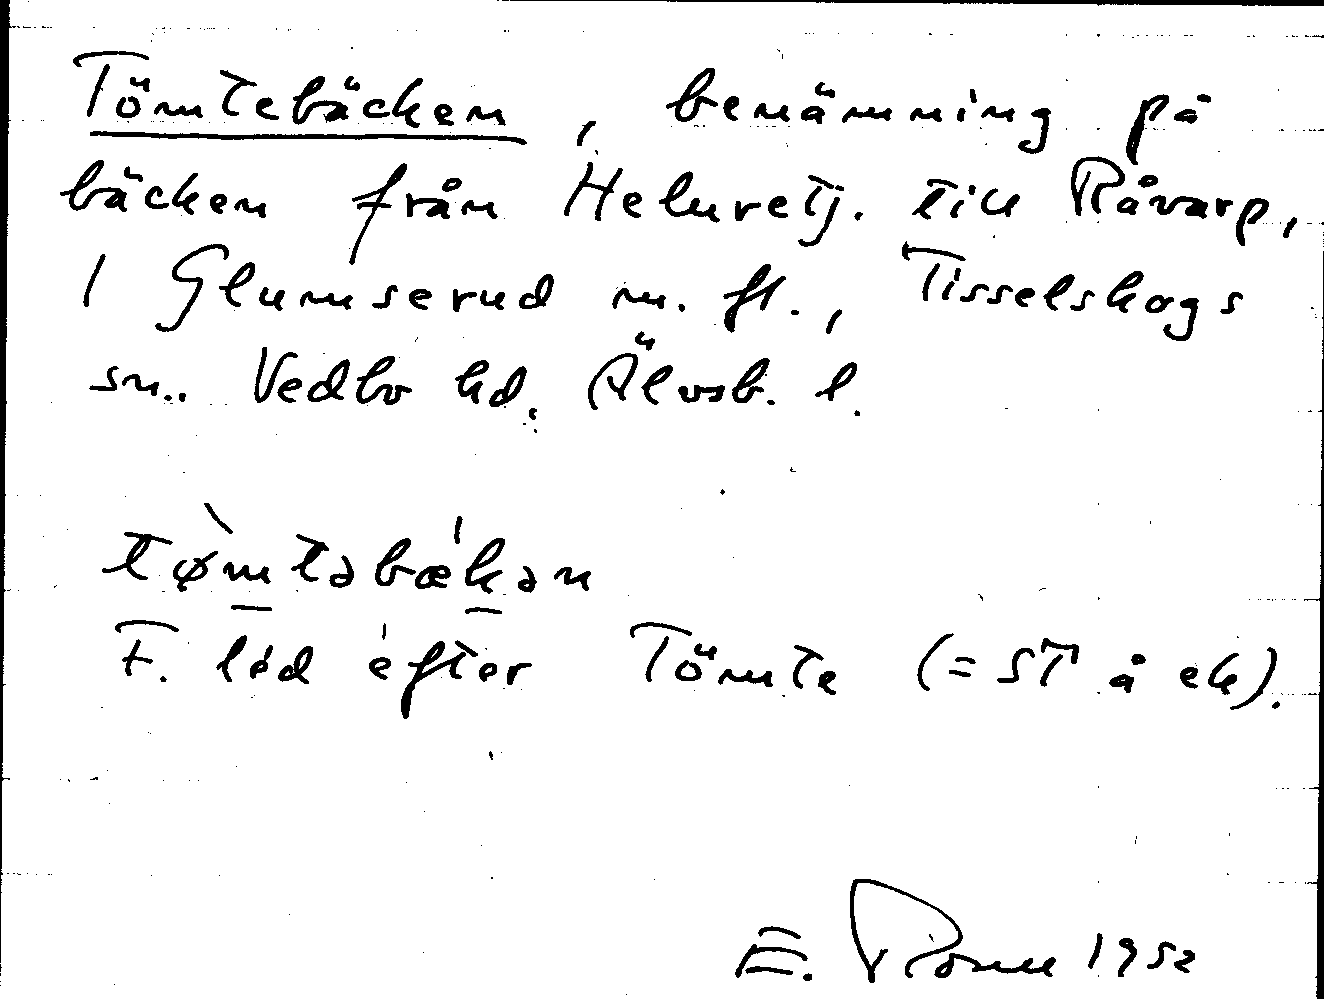 Tömtebäcken, benämning på
bäcken från Helvretj. till Råvarp,
i Glumserud m. fl., Tisselskogs
sn. Vedbo hd. Älvsb. l.
tø̀mtəbæ'kən
F. léd éfter Tömte (= ST å ek).
E. 1952